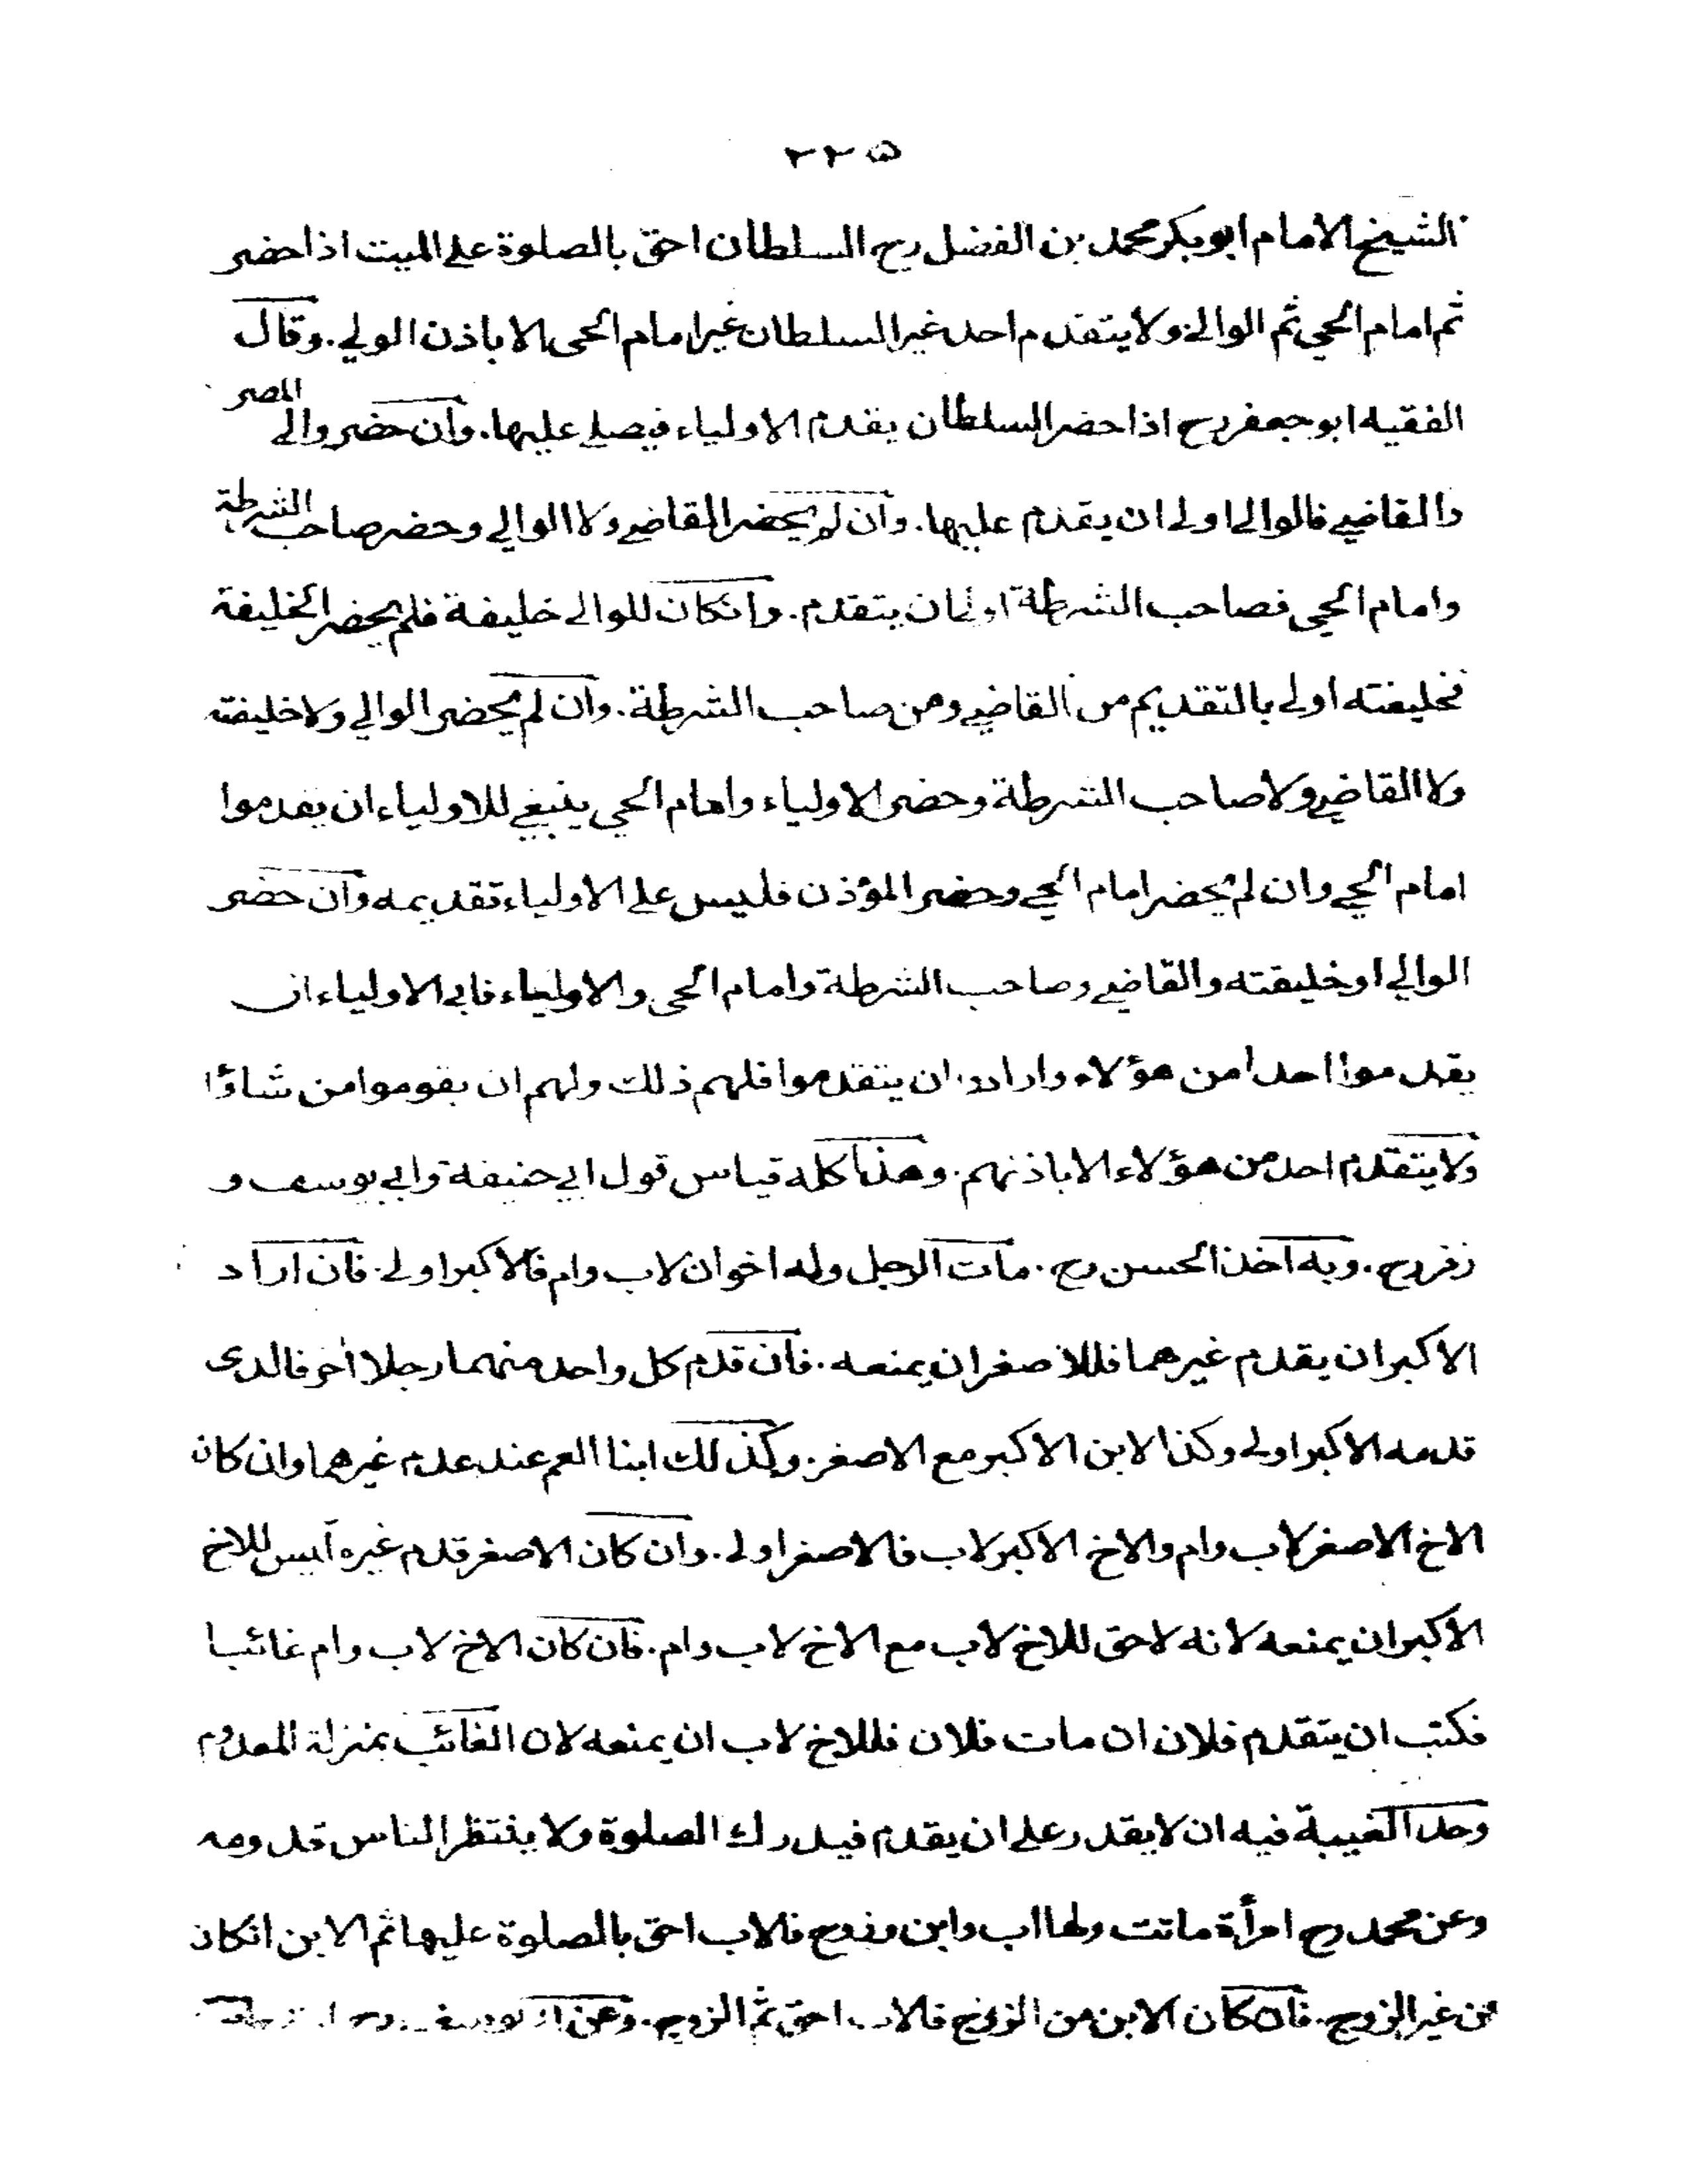 ٢٢٥
الشيخ الامام ابو بكر محمد بن الفضل رح السلطان احق بالصلوة على الميت اذا حضر
ثم امام الحي ثم الوالي ولا يتقدم احد غير السلطان غير امام الحى الا باذن الولي. وقال
الفقيه ابو جعفر رح اذا حضر السلطان يقدم الاولياء فيصلي عليها. وان حضر والي المصر
والقاضي فالوالي اولى ان يقدم عليها. وان لم يحضر القاضي ولا الوالي وحضر صاحب الشرطة
وامام الحي فصاحب الشرطة اولى ان يتقدم. وانكان للوالي خليفة فلم يحضر الخليفة
فخليفته اولى بالتقديم من القاضي ومن صاحب الشرطة. وان لم يحضر الوالي ولا خليفته
ولا القاضي ولا صاحب الشرطة وحضر الاولياء وامام الحي ينبغي للاولياء ان يقدموا
امام الحي وان لم يحضر امام الحي وحضر المؤذن فليس على الاولياء تقديمه وان حضر
الوالي او خليفته والقاضي وصاحب الشرطة وامام الحى والاولياء فابى الاولياء ان
يقدموا احدا من هؤلاء وارادوا ان يتقدموا فلهم ذلك ولهم ان يقوموا من شاؤا
ولا يتقدم احد من هؤلاء الا باذنهم. وهذا كله قياس قول ابي حنيفة وابي يوسف و
زفر رح. وبه اخذ الحسن رح. مات الرجل وله اخوان لاب وام فالاكبر اولى. فان اراد
الاكبر ان يقدم غيرهما فللاصغر ان يمنعه. فان قدم كل واحد منهما رجلا اخر فالدى
قدمه الاكبر اولى وكذا الابن الاكبر مع الاصغر. وكذلك ابنا العم عند عدم غيرهما وان كان
الاخ الاصغر لاب وام والاخ الاكبر لاب فالاصغر اولى. وان كان الاصغر قدم غيره ليس للاخ
الاكبر ان يمنعه لانه لا حق للاخ لاب مع الاخ لاب وام. فان كان الاخ لاب وام غائبا
فكتب ان يتقدم فلان ان مات فلان فللاخ لاب ان يمنعه لان الغائب بمنزلة المعدوم
وحد الغيبة فيه ان لا يقدر على ان يقدم فيدرك الصلوة ولا ينتظر الناس قدومه
وعن محمد رح امرأة ماتت ولها اب وابن وزوج فالاب احق بالصلوة عليها ثم الابن انكان
من غير الزوج. فان كان الابن من الزوج فالاب احق ثم الزوج. وعن ابي يوسف رح